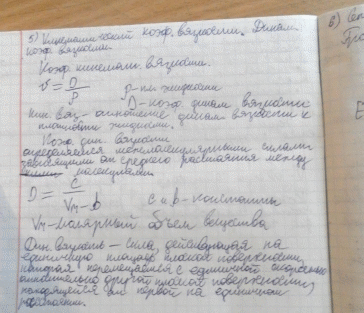 5) Кинематический коэф. вязкости. Динам.
коэф. вязкости.
Коэф. кинемат. вязкости.
ν = D/ρ ρ - пл. жидкости
D - коэф. динам. вязкости
Кин. вяз. - отношение динам. вязкости к
плотности жидкости.
Коэф. дин. вязкости
определяется межмолекулярными силами,
зависящими от среднего расстояния между
молекулами
D = C/(Vm - b) C и b - константы
Vm - молярный объем вещества
Дин. вязкость - сила, действующая на
единичную площадь плоской поверхности,
которая перемещается с единичной скоростью
относительно другой плоской поверхности,
находящейся от первой на единичном
расстоянии.
6)